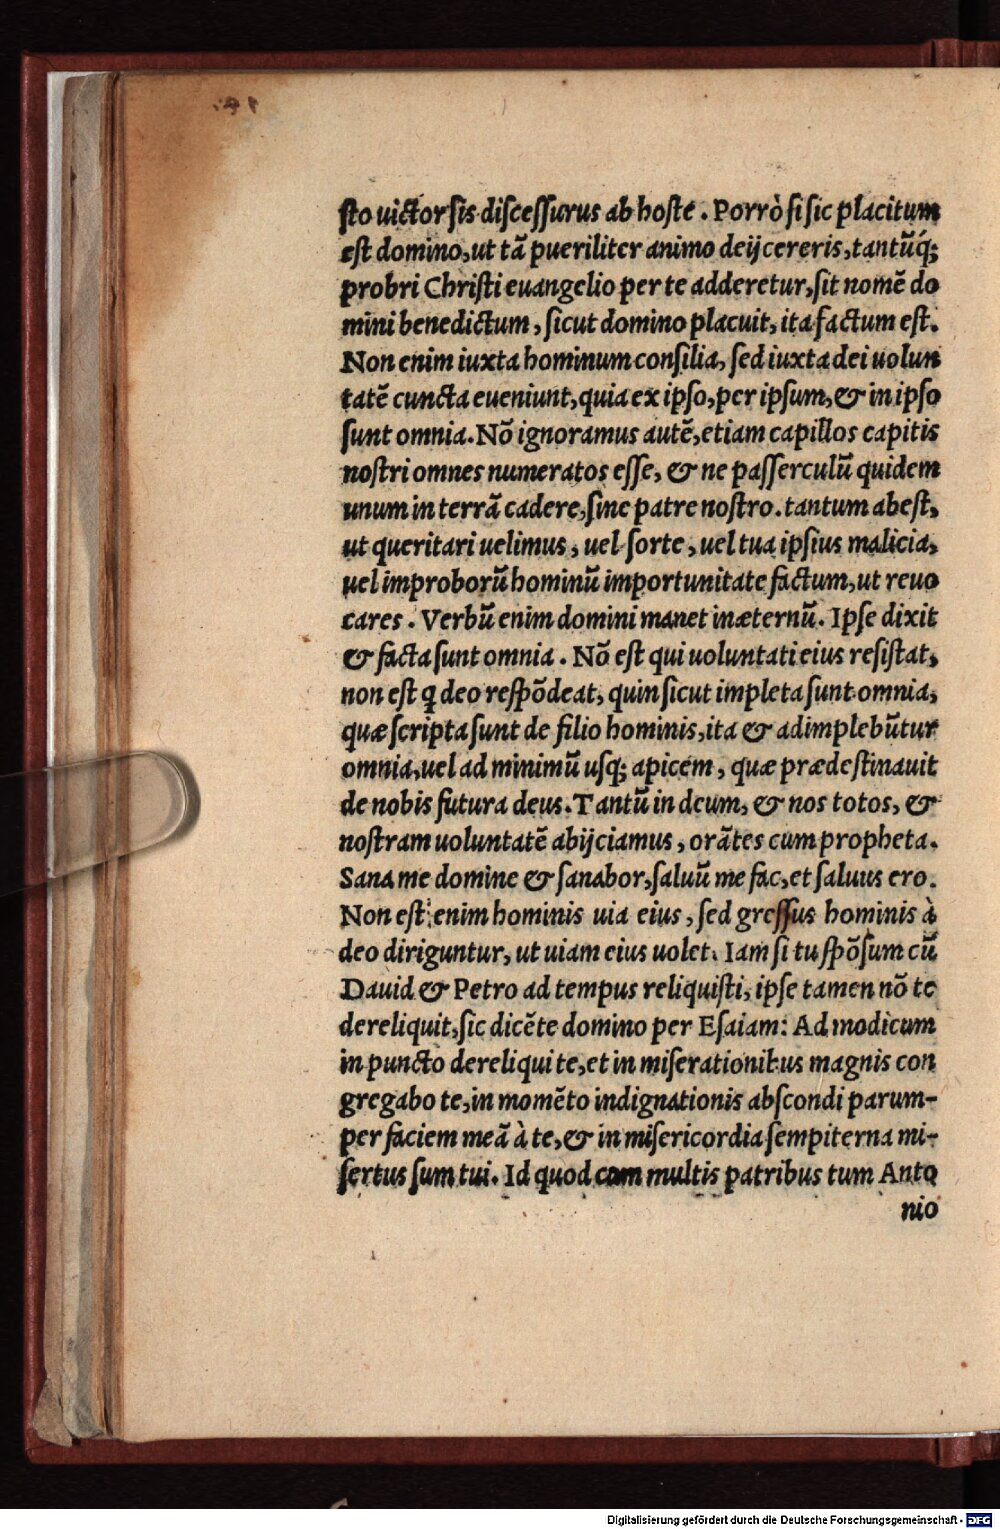 ſto uictor ſis diſceſſurus ab hoſte. Porrò ſi ſic placitum
eſt domino, ut tã pueriliter animo deijcereris, tantũq́;
probri Chriſti euangelio per te adderetur, ſit nomẽ do
mini benedictum, ſicut domino placuit, ita factum eſt.
Non enim iuxta hominum conſilia, ſed iuxta dei uolun
tatẽ cuncta eueniunt, quia ex ipſo, per ipſum, & in ipſo
ſunt omnia. Nõ ignoramus autẽ, etiam capillos capitis
noſtri omnes numeratos eſſe, & ne paſſerculũ quidem
unum in terrã cadere, ſine patre noſtro. tantum abeſt,
ut queritari uelimus, uel ſorte, uel tua ipſius malicia,
uel improborũ hominũ importunitate factum, ut reuo
cares. Verbũ enim domini manet in æternũ. Ipſe dixit
& facta ſunt omnia. Nõ eſt qui uoluntati eius reſiſtat,
non eſt q deo reſpõdeat, quin ſicut impleta ſunt omnia,
quæ ſcripta ſunt de filio hominis, ita & adimplebũtur
omnia, uel ad minimũ uſq; apicem, quæ prædeſtinauit
de nobis futura deus. Tantũ in deum, & nos totos, &
noſtram uoluntatẽ abijciamus, orãtes cum propheta.
Sana me domine & ſanabor, ſaluũ me fac, et ſaluus ero.
Non eſt enim hominis uia eius, ſed greſſus hominis à
deo diriguntur, ut uiam eius uolet. Iam ſi tu ſpõſum cũ
Dauid & Petro ad tempus reliquiſti, ipſe tamen nõ te
dereliquit, ſic dicẽte domino per Eſaiam: Ad modicum
in puncto dereliqui te, et in miſerationibus magnis con
gregabo te, in momẽto indignationis abſcondi parum-
per faciem meã à te, & in miſericordia ſempiterna mi-
ſertus ſum tui. Id quod cum multis patribus tum Anto
nio
Digitalisierung gefördert durch die Deutsche Forschungsgemeinschaft - DFG